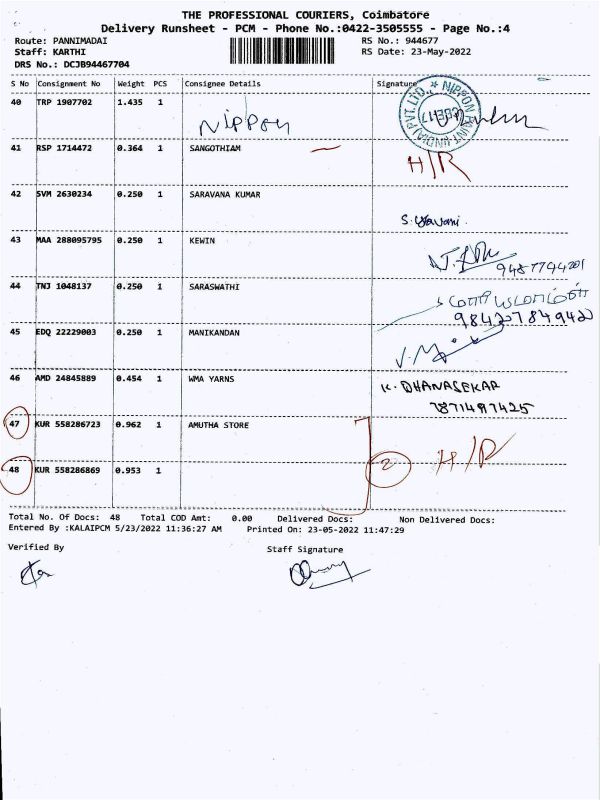 THE PROFESSIONAL COURIERS, Coimbatore
Delivery Runsheet - PCM - Phone No.:0422-3505555 - Page No.:4
Route: PANNIMADAI RS No.: 944677
Staff: KARTHI RS Date: 23-May-2022
DRS No.: DCJB94467704
S No Consignment No Weight PCS Consignee Details Signature
40 TRP 1907702 1.435 1 Nippon
41 RSP 1714472 0.364 1 SANGOTHIAM H/R
42 SVM 2630234 0.250 1 SARAVANA KUMAR
43 MAA 288095795 0.250 1 KEWIN
9487744201
44 TNJ 1048137 0.250 1 SARASWATHI
45 EDQ 22229003 0.250 1 MANIKANDAN
46 AMD 24845889 0.454 1 WMA YARNS K. DHANASEKAR
7871497425
47 KUR 558286723 0.962 1 AMUTHA STORE
48 KUR 558286869 0.953 1 2 H/R
Total No. Of Docs: 48 Total COD Amt: 0.00 Delivered Docs: Non Delivered Docs:
Entered By :KALAIPCM 5/23/2022 11:36:27 AM Printed On: 23-05-2022 11:47:29
Verified By Staff Signature